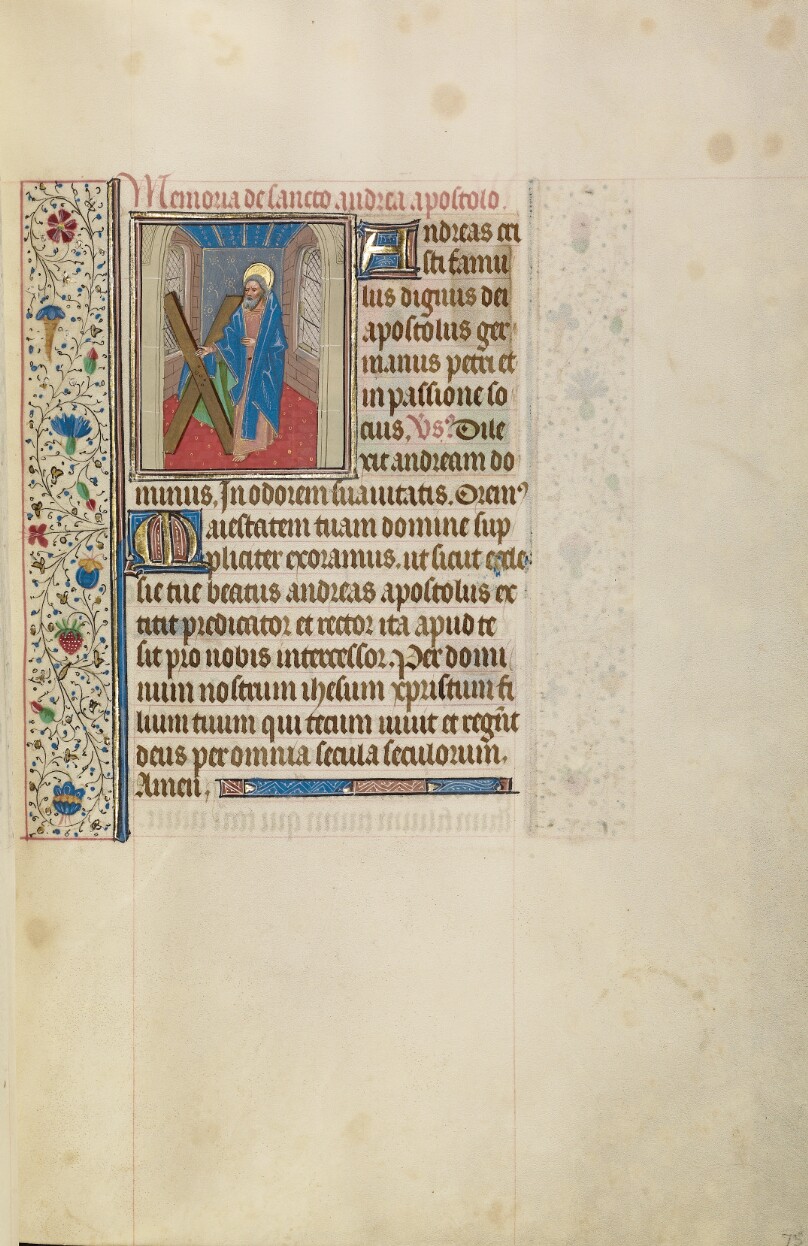 Memoria de sancto andrea apostolo.
Andreas cri
sti famu
lus dignus dei
apostolus ger
manus petri et
in passione so
cius. Vs? Dile
xit andream do
minus. In odorem suauitatis. Orem9
Maiestatem tuam domine sup
pliciter exoramus. ut sicut eccle
sie tue beatus andreas apostolus ex
titit predicator et rector ita apud te
sit pro nobis intercessor. Per domi
num nostrum ihesum xpristum fi
lium tuum qui tecum uiuit et regnt
deus per omnia secula seculorum.
Amen.